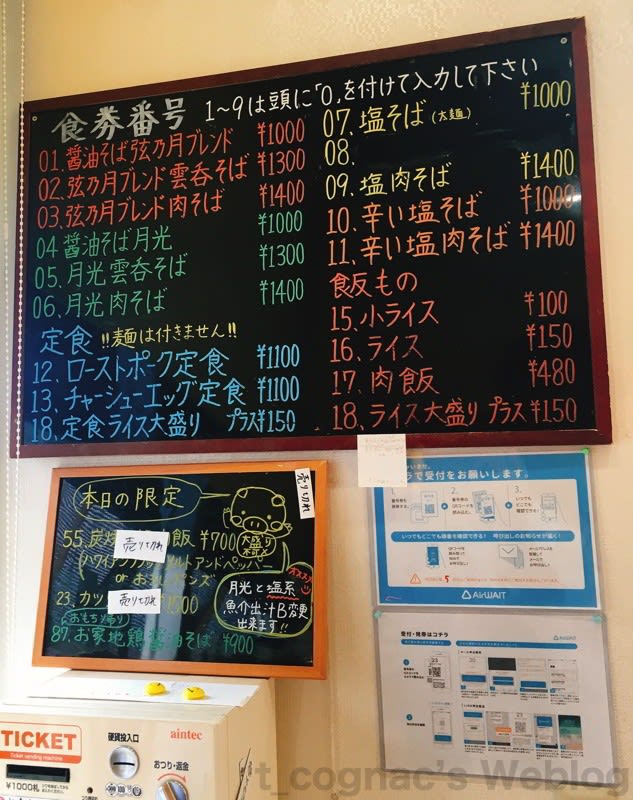 食券番号 1~9は頭に「0」を付けて入力して下さい
01.醤油そば弦乃月ブレンド ¥1000
02.弦乃月ブレンド雲呑そば ¥1300
03.弦乃月ブレンド肉そば ¥1400
04 醤油そば月光 ¥1000
05.月光雲呑そば ¥1300
06.月光肉そば ¥1400
定食 !!麺は付きません!!
12.ローストポーク定食 ¥1100
13.チャーシューエッグ定食 ¥1100
18.定食ライス大盛り プラス¥150
07.塩そば(太麺) ¥1000
08.
09.塩肉そば ¥1400
10.辛い塩そば ¥1000
11.辛い塩肉そば ¥1400
飯もの
15.小ライス ¥100
16.ライス ¥150
17.肉飯 ¥480
18.ライス大盛り プラス¥150
本日の限定
売り切れ
大盛り不可
55.炭 売り切れ 飯 ¥700
ハワイアンブラックソルトアンドペッパー
or
23.カツ 売り切れ 500
おもち帰り
87.お家地鶏醤油そば ¥900
オススメ
月光と塩系
魚介出汁B変更
出来ます!!
ラで受付をお願いします。
いつでもどこでも順番を確認できる! 呼び出しのお知らせが届く!
AirWAIT
受付・発券はコチラ
AirWAIT
TICKET
Ticket vending machine
硬貨投入口
aintec
おつり・返金
¥1000札
t_cognac's Weblog